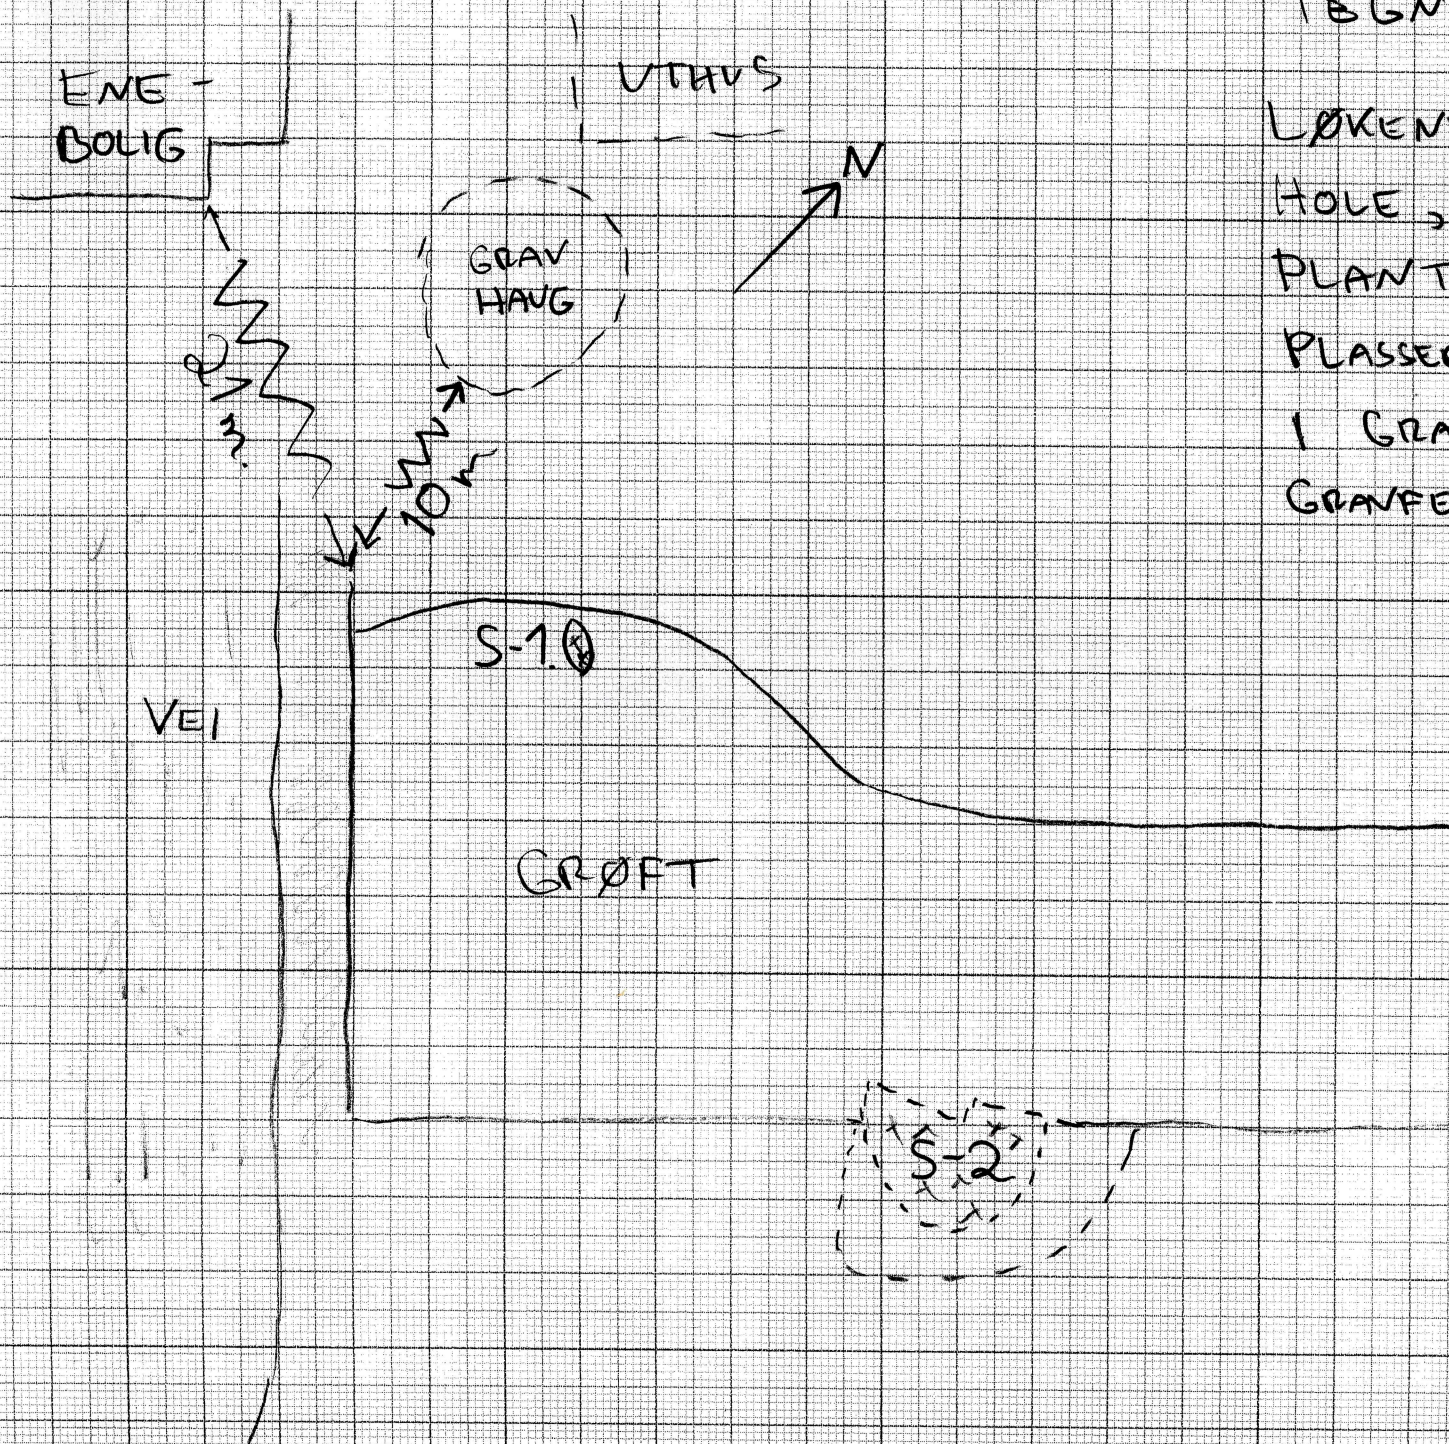 ENE-
BOLIG
UTHUS
N
GRAV
HAUG
10m
S-1.
VEI
GRØFT
S-2
LØKEN
HOLE,
PLANT
PLASSE
I GRA
GRAVFE